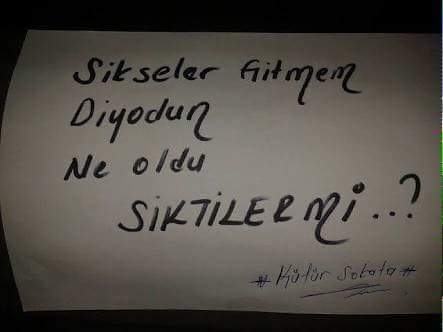 Sikseler Gitmem
Diyodun
Ne oldu
SİKTİLER Mİ...?
# Küfür Sokata #